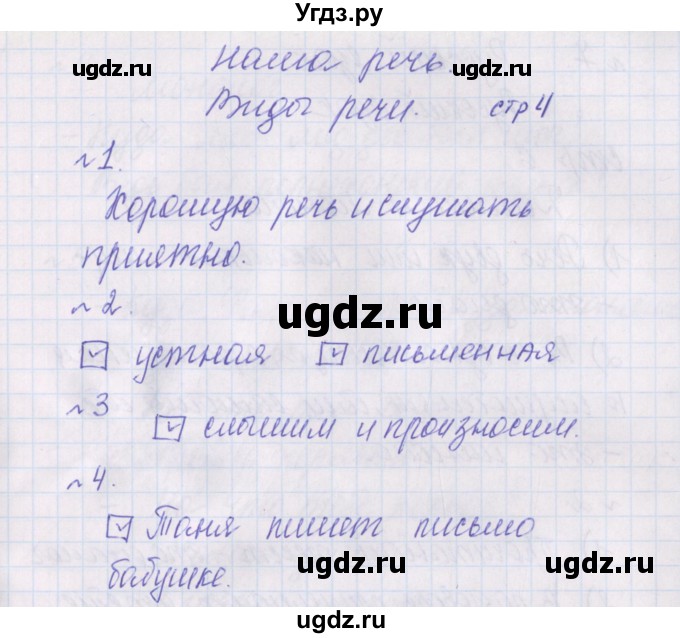 Угдз.ру
Наша речь.
ugdz.ru ugdz.ru
Виды речи. стр 4
№1.
Хорошую речь и слушать
ugdz.ru
приятно.
№2.
ugdz.ru
устная письменная
№3
слышим и произносим.
№4.
Таня пишет письмо
бабушке.
ugdz.ru ugdz.ru
Угдз.ру